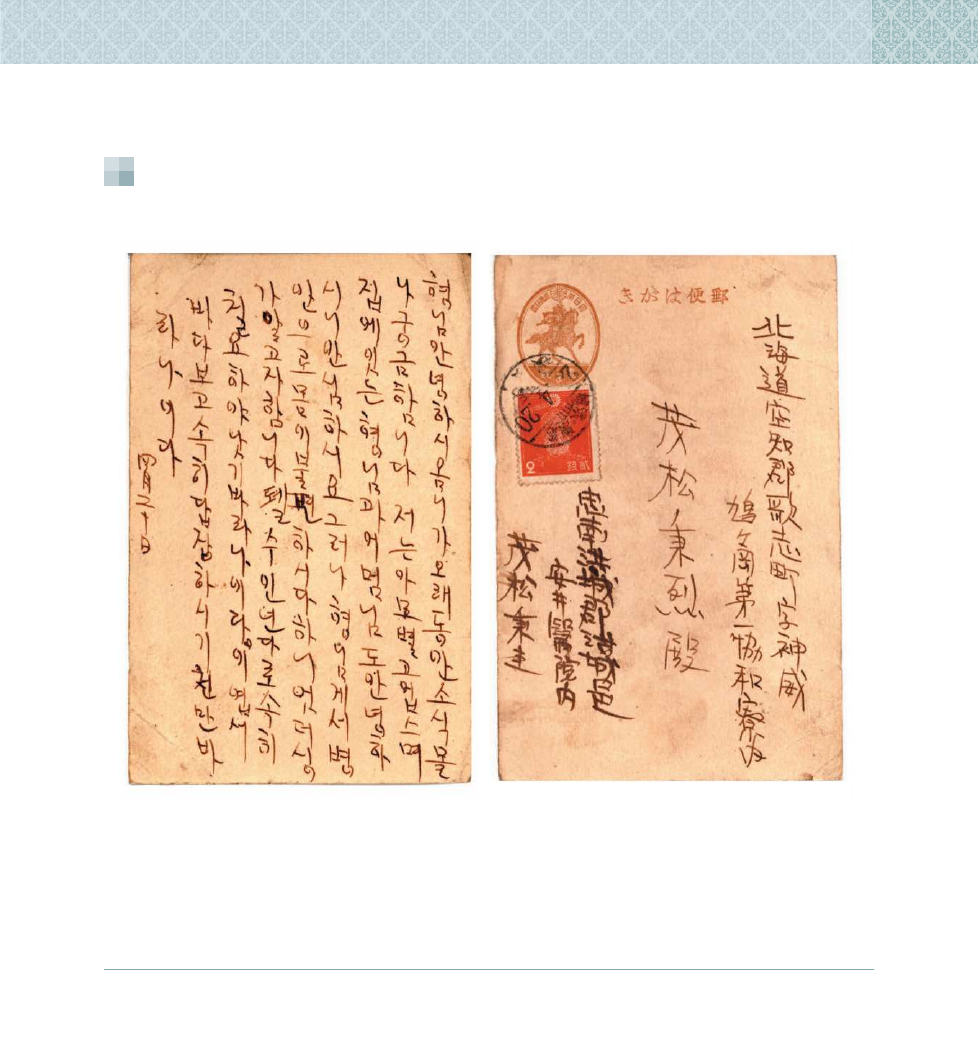 형님안녕하시옴니가오래동안소식몰
나궁금하압니다 저는아모별고업스며
집에잇는형님과어멈님도안녕하
시니안심하시요 그러나형임게서병
안으로몸이불편하시다하니엇더싱
가알고자함니다 수인년다로속히
치료하야낫기바라나이다
바다보고속히답장하시기천만바
라나이다
四月二十日
郵便はがき
北海道空知郡歌志町字神威
鳩ヶ岡第一協和寮内
茂松秉烈殿
忠南洪城郡洪城邑
安井醫院内
茂松秉
2
貳